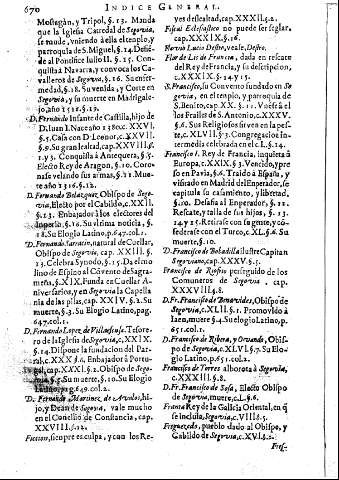 670
INDICE GENERAL
Mostagàn, y Tripol, §. 13. Manda
que la Iglesia Catedral de Segovia
se mude, viniendo à ella el templo, y
parroquia de S. Miguel, §. 14. Desiéde
al Pontifice Iulio II. §. 15. Conquista
à Navarra, y convoca los Cavalleros
de Segovia, §. 16. Su enfermedad,
§. 18. Su venida, y Corte en
Segovia, y su muerte en Madrigalejo,
año 1516. §. 19.
D. Fernando Infante de Castilla, hijo de
D. Iuan I. Nace año 1380. c. XXVI.
§. 5. Casa con D. Leonor, c. XXVII.
§. 9. Su gran lealtad, cap. XXVIII.
§. 1. y 3. Conquista à Antequera, §. 7.
Electo Rey de Aragon, §. 10. Coronase
velando sus armas, §. 11. Muere
año 1416. §. 12.
D. Fernando Belazquez, Obispo de Segovia,
Electo por el Cabildo, c. XXII.
§. 13. Enbajador à los electores del
Imperio, §. 16. Su ultima noticia, §.
18. Su Elogio Latino, p. 647. col. 1.
D. Fernando Sarracin, natural de Cuellar,
Obispo de Segovia, cap. XXIII. §.
23. Celebra Synodo, §. 15. Da termino
de Espino al Côvento de Sagrameña,
§. XXIX. Funda en Cuellar Aniversarios,
y en Segovia la Capellania
de las pilas, cap. XXIV. §. 2. Su
muerte, §. 3. Su Elogio Latino, pag.
647. col. 1.
D. Fernando Lopez de Villaescusa, Tesorero
de la Iglesia de Segovia, c. XXIX.
§. 14. Dispone la fundacion del Parral,
c. XXX. §. 1. Enbajador à Portugal,
cap. XXXI. §. 2. Obispo de Segovia,
§. 5. Su muerte, §. 10. Su Elogio
Latino, pag. 649. col. 2.
D. Fernando Martinez, de Avalos, hijo,
y Dean de Segovia, vale mucho
en el Concilio de Constancia, cap.
XXVIII. §. 12.
Ficcion, siempre es culpa, y con los Reyes
deslealtad, cap. XXXII. §. 2.
Fiscal Eclesiastico no puede ser seglar,
cap. XXXIX. §. 16.
Flavio Lucio Destro, vease, Destro.
Flor de Lis de Francia, dada en rescate
del Rey de Francia, y su descripcion,
c. XXXIX. §. 14. y 15.
S. Francisco, su Convento fundado en Segovia,
en el templo, y parroquia de
S. Benito, cap. XX. §. 11. Vease à el
los Frailes de S. Antonio, c. XXXV.
§. 6. Sus Religiosos sirven en la peste,
c. XLVII. §. 3. Congregacion Intermedia
celebrada en el c. L. §. 14.
Francisco I. Rey de Francia, inquieta à
Europa, c. XXIX. §. 3. Vencido, y preso
en Pavia, §. 6. Traido à España, y
visitado en Madrid del Enperador, se
capitula su casamiento, y libertad,
§. 10. Desafia al Enperador, §. 12.
Rescate, y talla de sus hijos, §. 13.
14. y 15. Retirase con su gente, y confederase
con el Turco, c. XL. §. 6. Su
muerte, §. 10.
D. Francisco de Bobadilla ilustre Capitan
Segoviano, cap. XXXV. §. 5.
Francisco de Rosfin perseguido de los
Comuneros de Segovia, cap.
XXXVIII. §. 8.
D. Fr. Francisco de Benavides, Obispo de
Segovia, c. XLII. §. 1. Promovido à
Iaen, muere §. 4. Su elogio Latino, p.
651. col. 1.
D. Francisco de Ribera, y Ovando, Obispo
de Segovia, c. XLVI. §. 7. Su Elogio
Latino, p. 651. col. 2.
Francisco de Torres alborota à Segovia,
c. XXXIII. §. 8.
D. Fr. Francisco de Sosa, Electo Obispo
de Segovia, muere, c. L. §. 6.
Franta Rey de la Galicia Oriental, en q̃
se incluìa Segovia, c. VIII. §. 5.
Fregacedos, pueblo dado al Obispo, y
Cabildo de Segovia, c. XVI. §. 2.